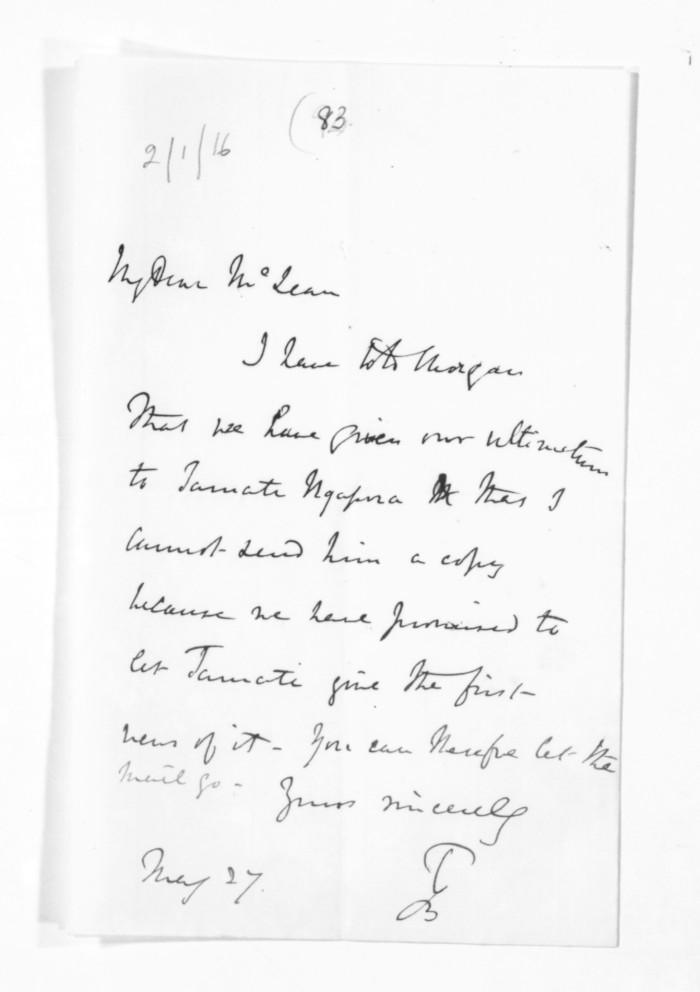 (83
2/1/16
My Dear McLean
I have told Morgan
that we have given our ultimatum
to Tamati Ngapora & that I
cannot send him a copy
because we have promised to
let Tamati give the first
news of it - You can therefore let the
mail go -
Yours sincerely
May 27.
TGB